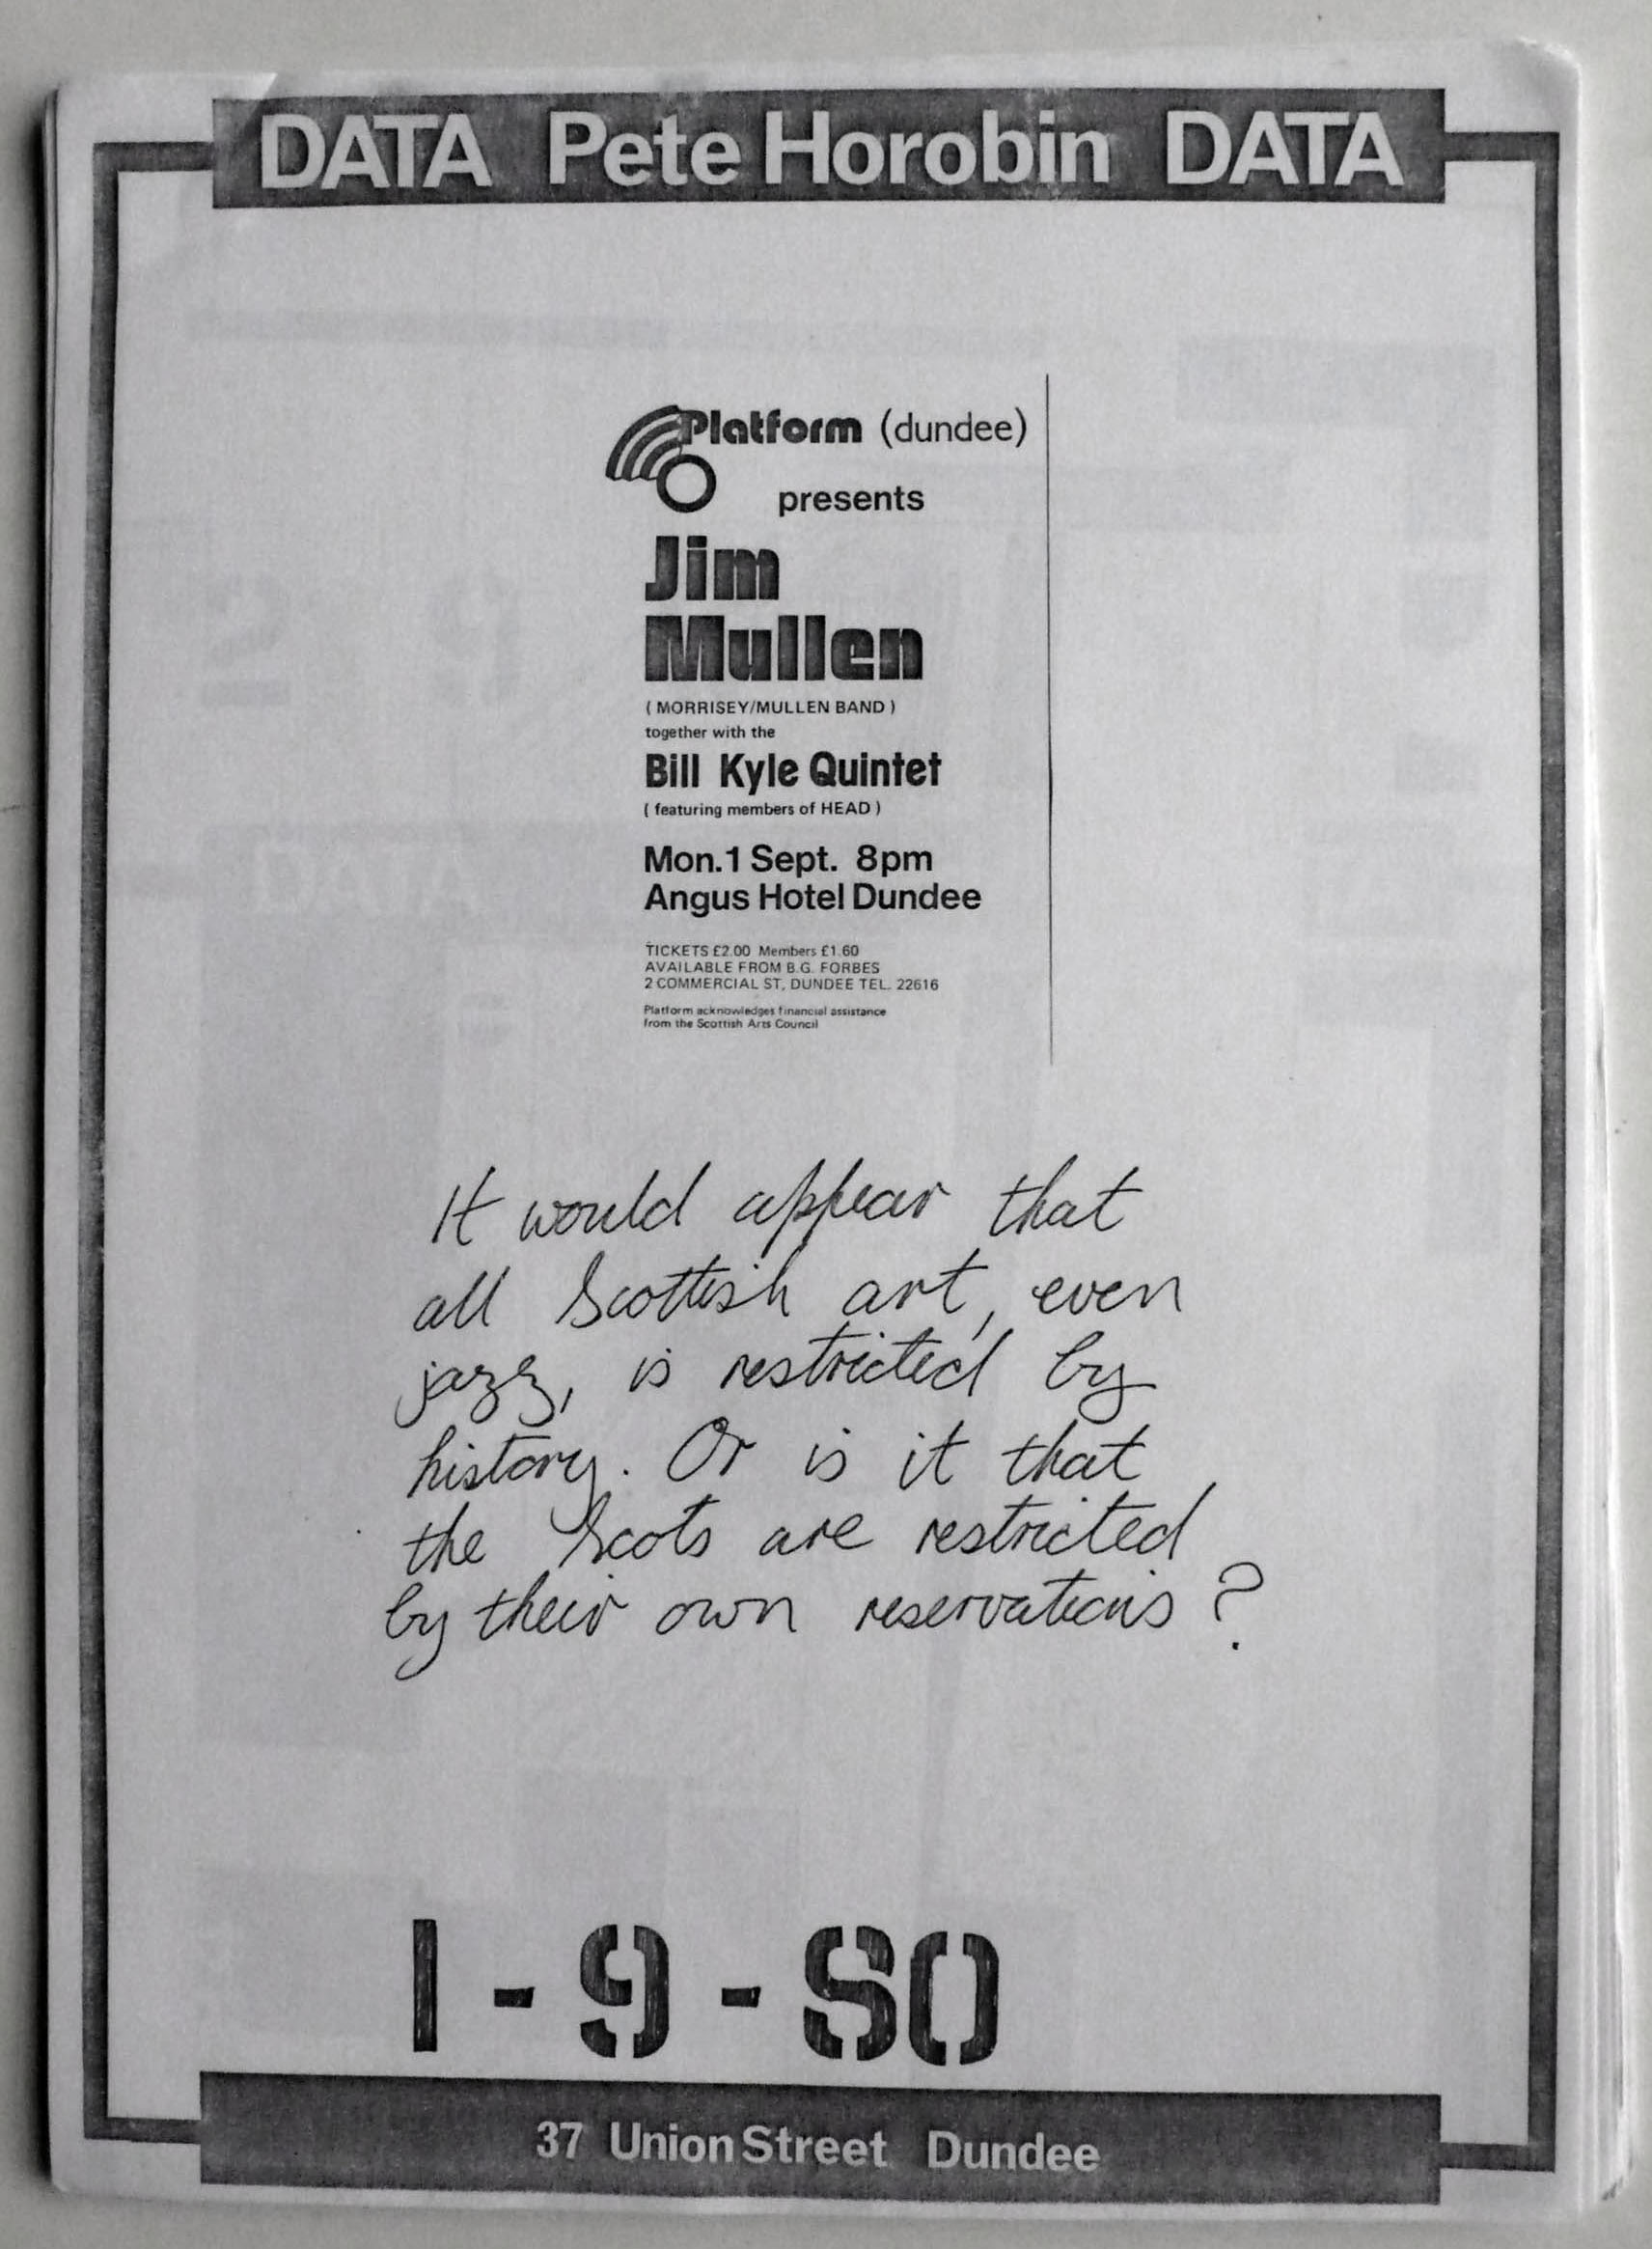 DATA Pete Horobin DATA
Platform (dundee)
presents
Jim
Mullen
( MORRISEY/MULLEN BAND )
together with the
Bill Kyle Quintet
( featuring members of HEAD )
Mon.1 Sept. 8pm
Angus Hotel Dundee
TICKETS £2.00 Members £1.60
AVAILABLE FROM B.G. FORBES
2 COMMERCIAL ST, DUNDEE TEL. 22616
Platform acknowledges financial assistance
from the Scottish Arts Council
It would appear that
all Scottish art, even
jazz, is restricted by
history. Or is it that
the Scots are restricted
by their own reservations?
1-9-80
37 Union Street Dundee